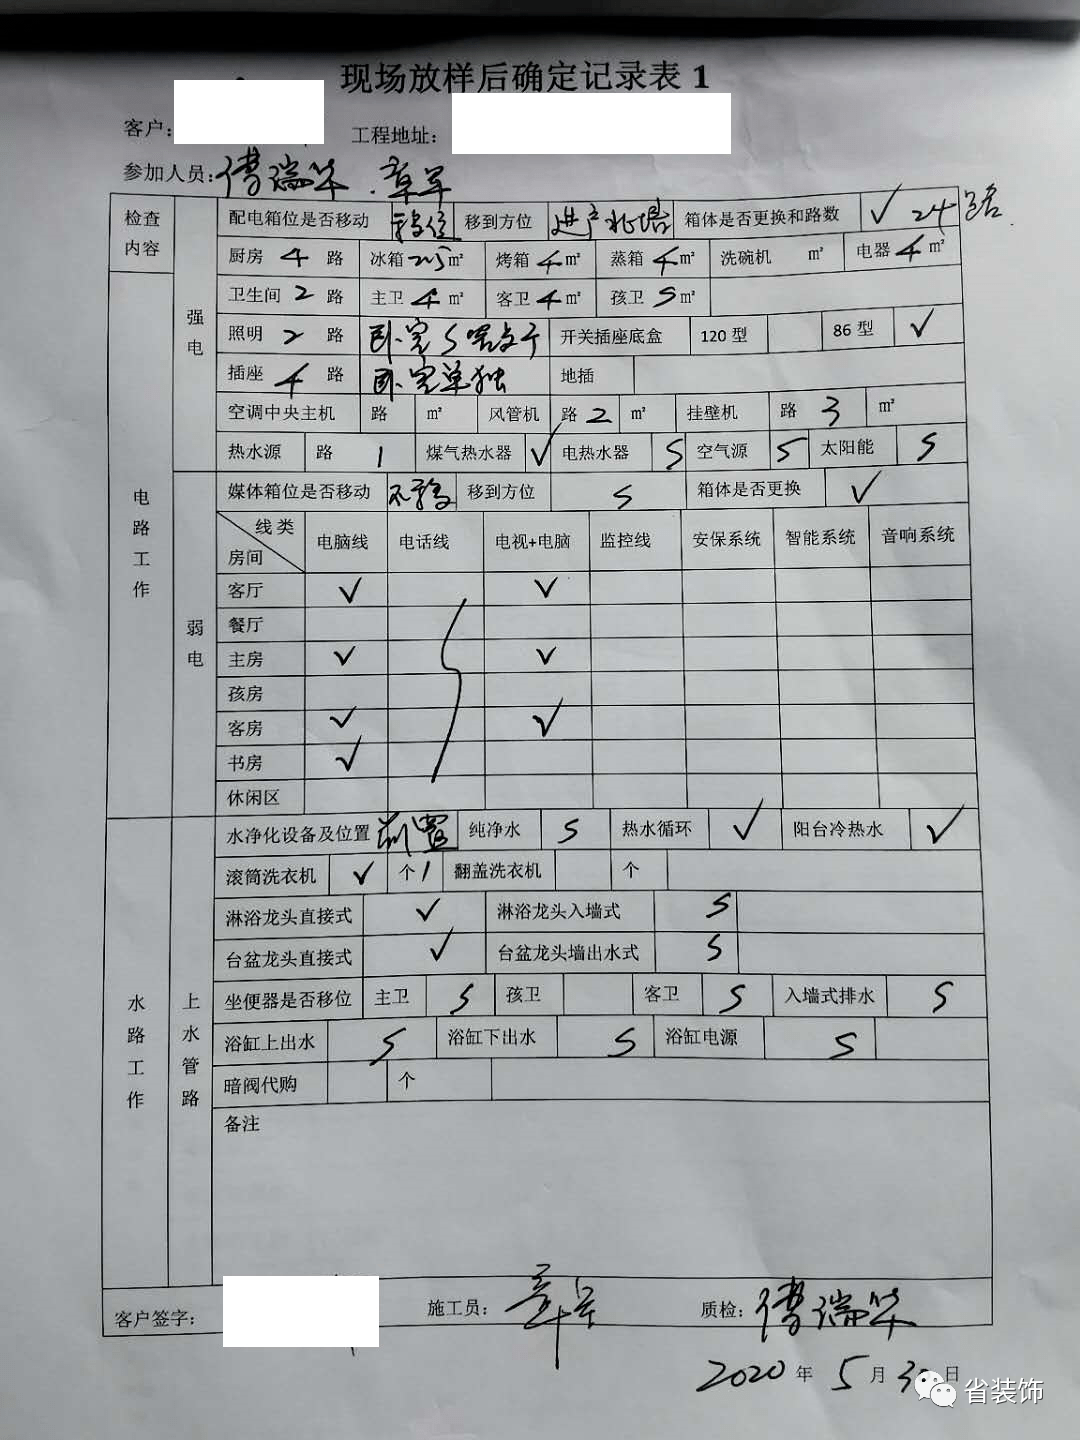 现场放样后确定记录表 1
客户：
工程地址：
参加人员：傅瑞华、章军
检查内容
配电箱位是否移动 移位 移到方位 进户北墙 箱体是否更换和路数 √ 24路
电路工作
强电
厨房 4 路 冰箱 2.5 ㎡ 烤箱 4 ㎡ 蒸箱 4 ㎡ 洗碗机 ㎡ 电器 4 ㎡
卫生间 2 路 主卫 4 ㎡ 客卫 4 ㎡ 孩卫 S ㎡
照明 2 路 卧室 开关插座底盒 120 型 86 型 √
插座 4 路 卧室单独 地插
空调中央主机 路 ㎡ 风管机 路 2 ㎡ 挂壁机 路 3 ㎡
热水源 路 1 煤气热水器 √ 电热水器 S 空气源 S 太阳能 S
弱电
媒体箱位是否移动 不移 移到方位 S 箱体是否更换 √
线类 房间 电脑线 电话线 电视+电脑 监控线 安保系统 智能系统 音响系统
客厅 √ √
餐厅
主房 √ √
孩房
客房 √ √
书房 √
休闲区
水路工作
上水管路
水净化设备及位置 前置 纯净水 S 热水循环 √ 阳台冷热水 √
滚筒洗衣机 √ 个 1 翻盖洗衣机 个
淋浴龙头直接式 √ 淋浴龙头入墙式 S
台盆龙头直接式 √ 台盆龙头墙出水式 S
坐便器是否移位 主卫 S 孩卫 客卫 S 入墙式排水 S
浴缸上出水 S 浴缸下出水 S 浴缸电源 S
暗阀代购 个
备注
客户签字： 施工员：章军 质检：傅瑞华
2020 年 5 月 30 日
省装饰